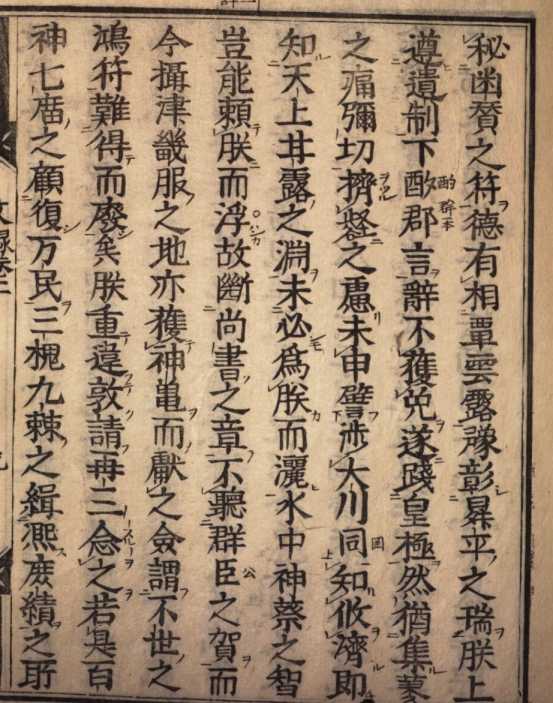 秘凾賛之符德有相覃雲露豫彰昇平之瑞朕上
遵遺制下郡言辭不獲免遂踐皇極然猶集蓼
之痛彌切擠壑之慮未申譬涉大川同知攸濟即
知天上甘露之淵未必爲朕而灑水中神蔡之智
豈能頼朕而浮故斷尚書之章不聽群臣之賀而
今攝津畿服之地亦獲神龜而獻之僉謂不世之
鴻符難得而廢矣朕重違敦請再三念之若是百
神七庿之顧復万民三槐九棘之緝熈庶績之所